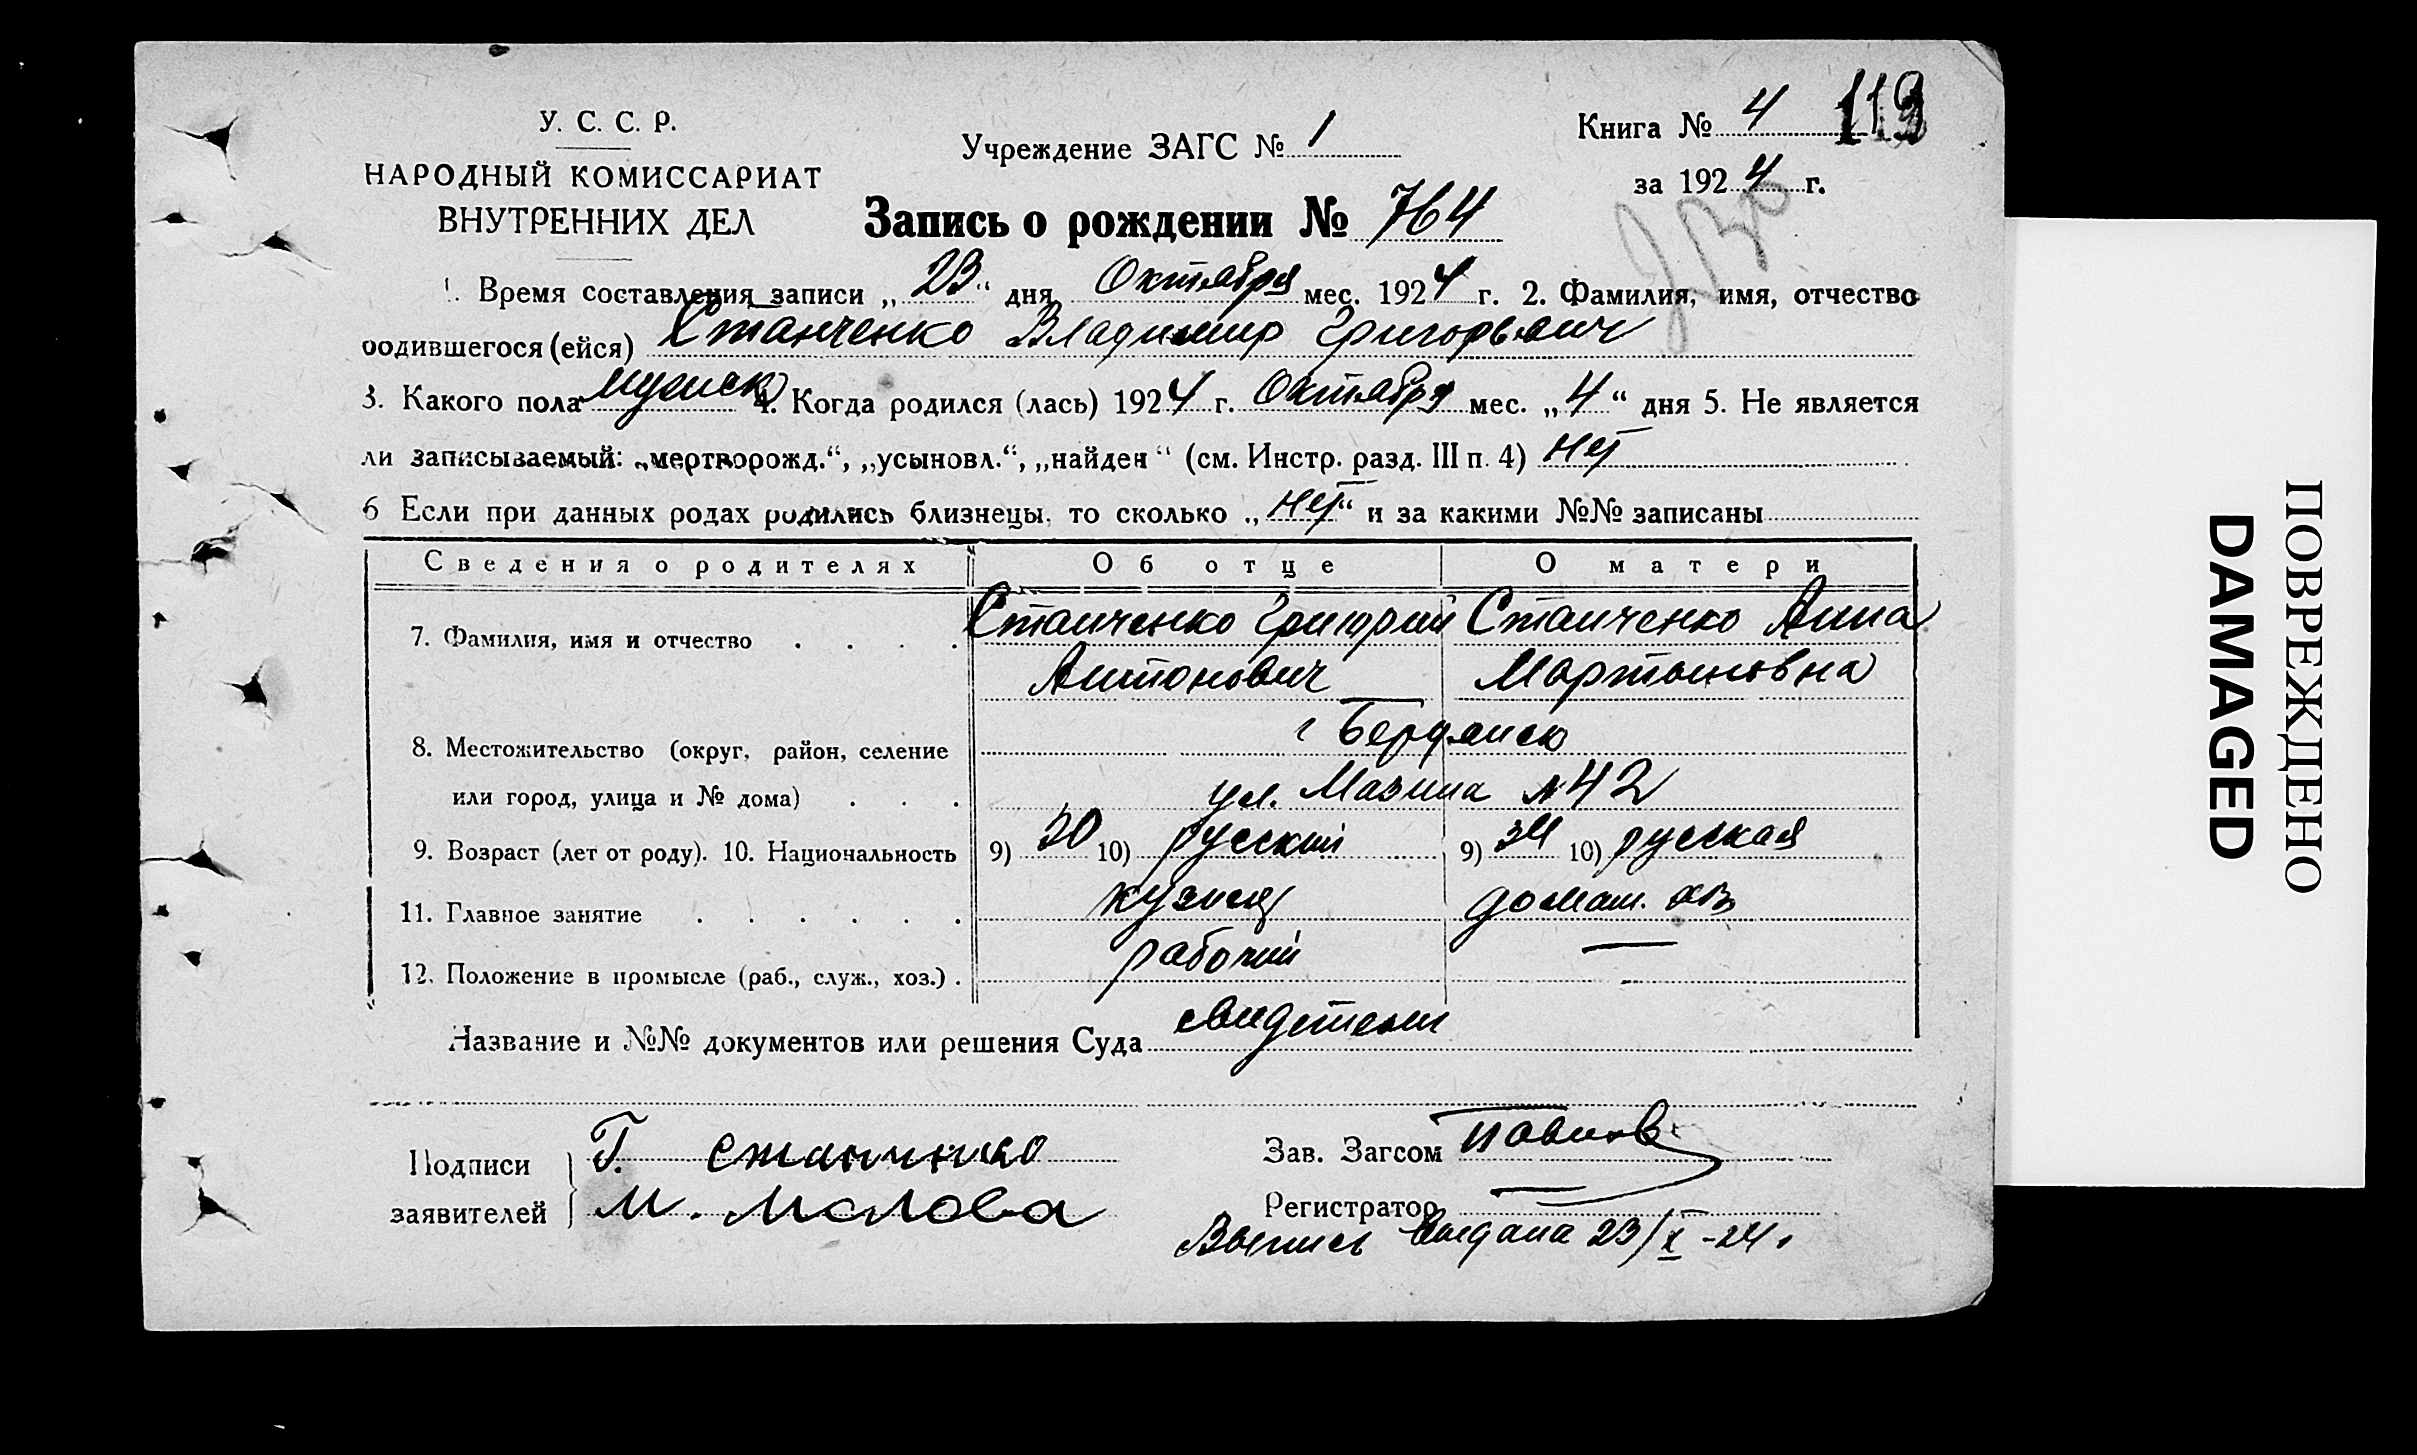 У. С. С. Р.
НАРОДНЫЙ КОМИССАРИАТ
ВНУТРЕННИХ ДЕЛ
Учреждение ЗАГС № 1
Книга № 4 113
за 1924 г.
Запись о рождении № 764
1. Время составления записи „23“ дня Октября мес. 1924 г. 2. Фамилия, имя, отчество
родившегося (ейся) Станченко Владимир Григорьевич
3. Какого пола мужск 4. Когда родился (лась) 1924 г. Октября мес. „4“ дня 5. Не является
ли записываемый: „мертворожд.“, „усыновл.“, „найден“ (см. Инстр. разд. III п. 4) нет
6 Если при данных родах родились близнецы, то сколько „нет“ и за какими №№ записаны
Сведения о родителях Об отце О матери
7. Фамилия, имя и отчество . . . . Станченко Григорий Станченко Анна
Антонович Мартыновна
8. Местожительство (округ, район, селение г Бердянск
или город, улица и № дома) . . . ул. Мазина № 42
9. Возраст (лет от роду). 10. Национальность 9) 30 10) русский 9) 34 10) русская
11. Главное занятие . . . . . . кузнец домаш. хоз
12. Положение в промысле (раб., служ., хоз.) . рабочий —
Название и №№ документов или решения Суда свидетели
Подписи Г. Станченко
заявителей М. Маслова
Зав. Загсом
Регистратор
Выпись выдана 23/X-24.
ПОВРЕЖДЕНО
DAMAGED